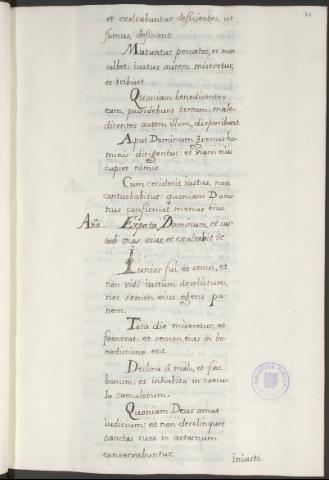 et exaltabuntur deficientes, ut
fumus, deficient:
Mutuatur peccator, et non
solbet: iustus autem miseretur,
et tribuet.
Quoniam benedicentes
eum, possidebunt terram: male
dicentes autem illum, disperibunt.
Aput Dominum gresus ho
minis dirigentur: et viam eius
cupiet nimis.
Cum ceciderit iustus, non
conturbabitur: quoniam Domi
nus confirmat manus eius.
Aña Expecta Dominum, et cus
todi vias eius, et exaltabit te
Iunior fui, et senui, et
non vidi iustum derelictum,
nec semen eius egens pa
nem.
Tota die miseretur, et
fœnerat: et semen eius in be
nedictione erit.
Declina á malo, et fac
bonum; et inhabita in saecu
la saeculorum.
Quoniam Deus amat
iuditium; et non derelinquet
sanctos suos in aeternum
conservabuntur. iniusti